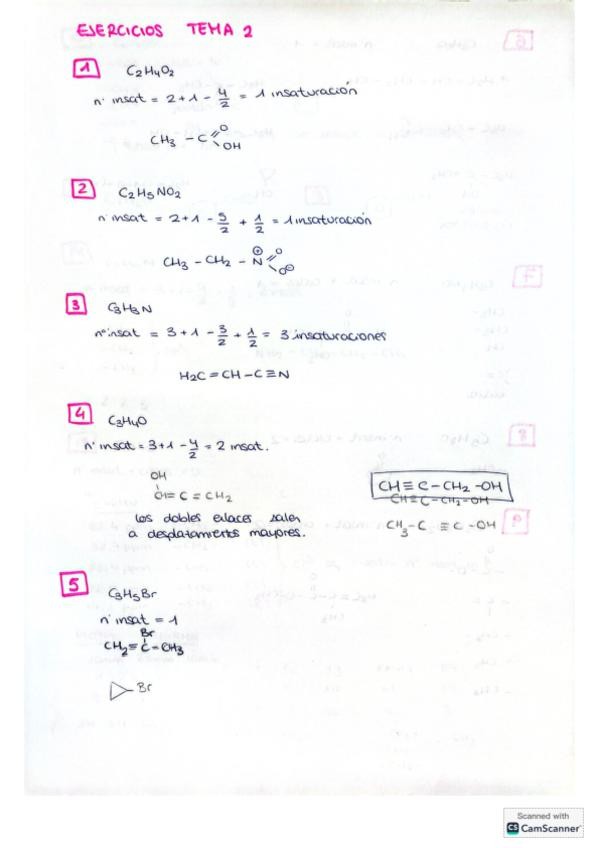 EJERCICIOS TEMA 2
1
C2H4O2
nº insat = 2+1 - 4/2 = 1 insaturación
CH3 - C O OH
2
C2H5NO2
nº insat = 2+1 - 5/2 + 1/2 = 1 insaturación
CH3 - CH2 - N⊕ O O⊖
3
C3H3N
nº insat = 3+1 - 3/2 + 1/2 = 3 insaturaciones
H2C = CH - C ≡ N
4
C3H4O
nº insat = 3+1 - 4/2 = 2 insat.
OH
CH = C = CH2
CH ≡ C - CH2 - OH
CH ≡ C - CH2 - OH
los dobles enlaces salen
a desplazamientos mayores.
CH3 - C ≡ C - OH
5
C3H5Br
nº insat = 1
Br
CH2 = C - CH3
Br
Scanned with
CS CamScanner